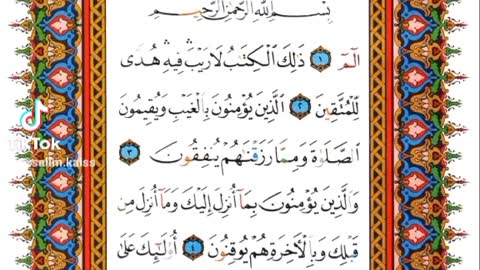 بِسْمِ اللَّهِ الرَّحْمَٰنِ الرَّحِيمِ
الٓمٓ ١ ذَٰلِكَ الْكِتَٰبُ لَا رَيْبَ ۛ فِيهِ ۛ هُدًى
لِّلْمُتَّقِينَ ٢ الَّذِينَ يُؤْمِنُونَ بِالْغَيْبِ وَيُقِيمُونَ
الصَّلَوٰةَ وَمِمَّا رَزَقْنَٰهُمْ يُنفِقُونَ ٣
وَالَّذِينَ يُؤْمِنُونَ بِمَآ أُنزِلَ إِلَيْكَ وَمَآ أُنزِلَ مِن
قَبْلِكَ وَبِالْأَخِرَةِ هُمْ يُوقِنُونَ ٤ أُو۟لَٰٓئِكَ عَلَىٰ
TikTok
salim.kaiss